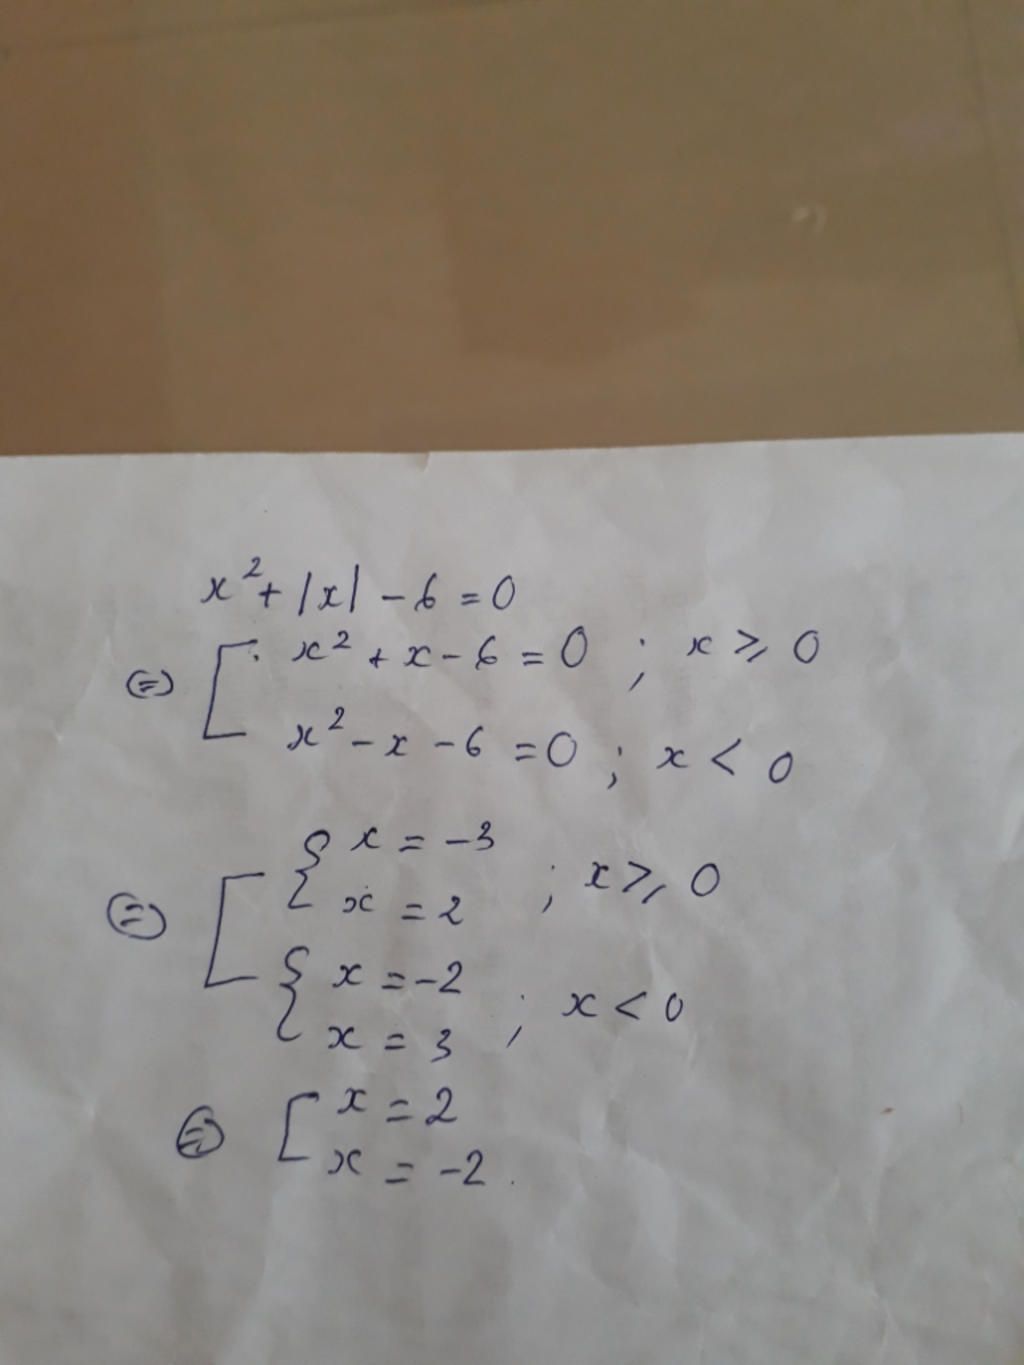 x² + |x| - 6 = 0
⇔ [ x² + x - 6 = 0 ; x ⩾ 0
x² - x - 6 = 0 ; x < 0
⇔ [ { x = -3
x = 2 ; x ⩾ 0
{ x = -2
x = 3 ; x < 0
⇔ [ x = 2
x = -2.